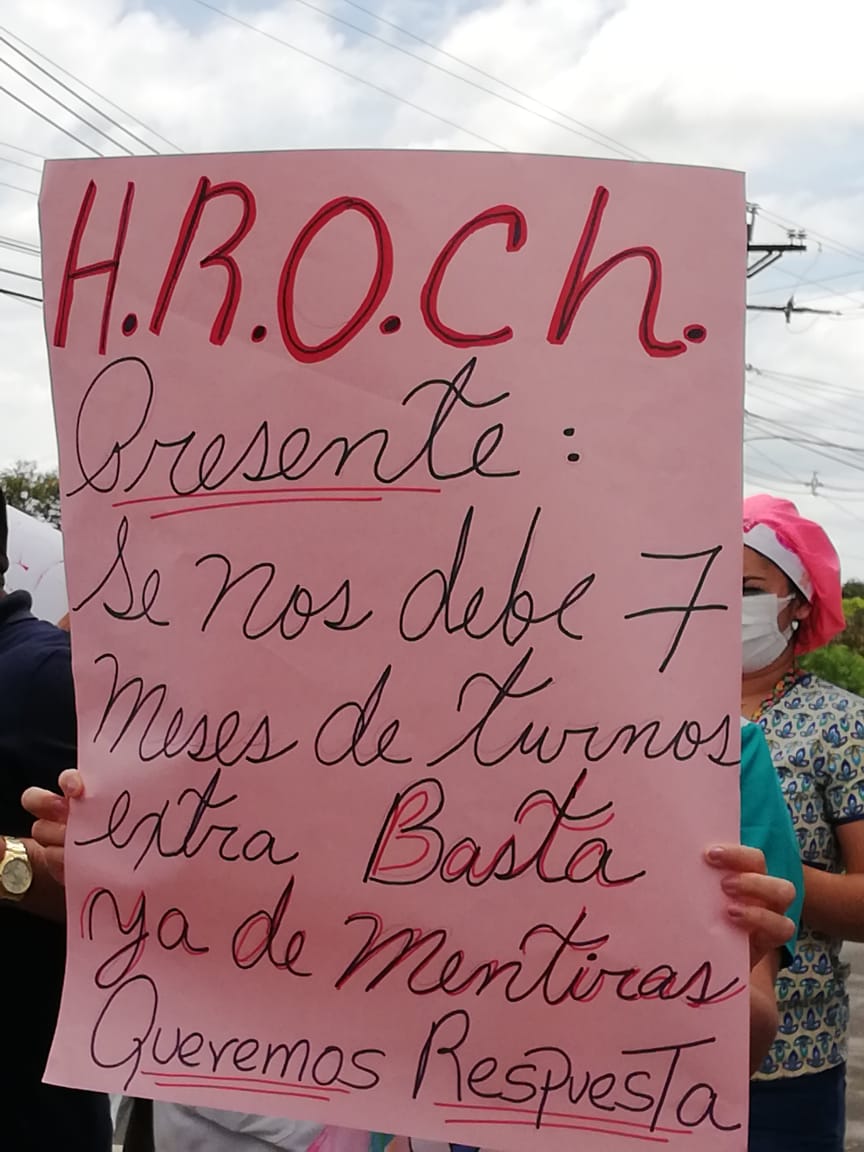 H.R.O.Ch.
Presente:
Se nos debe 7
Meses de turnos
extra Basta
ya de Mentiras
Queremos Respuesta